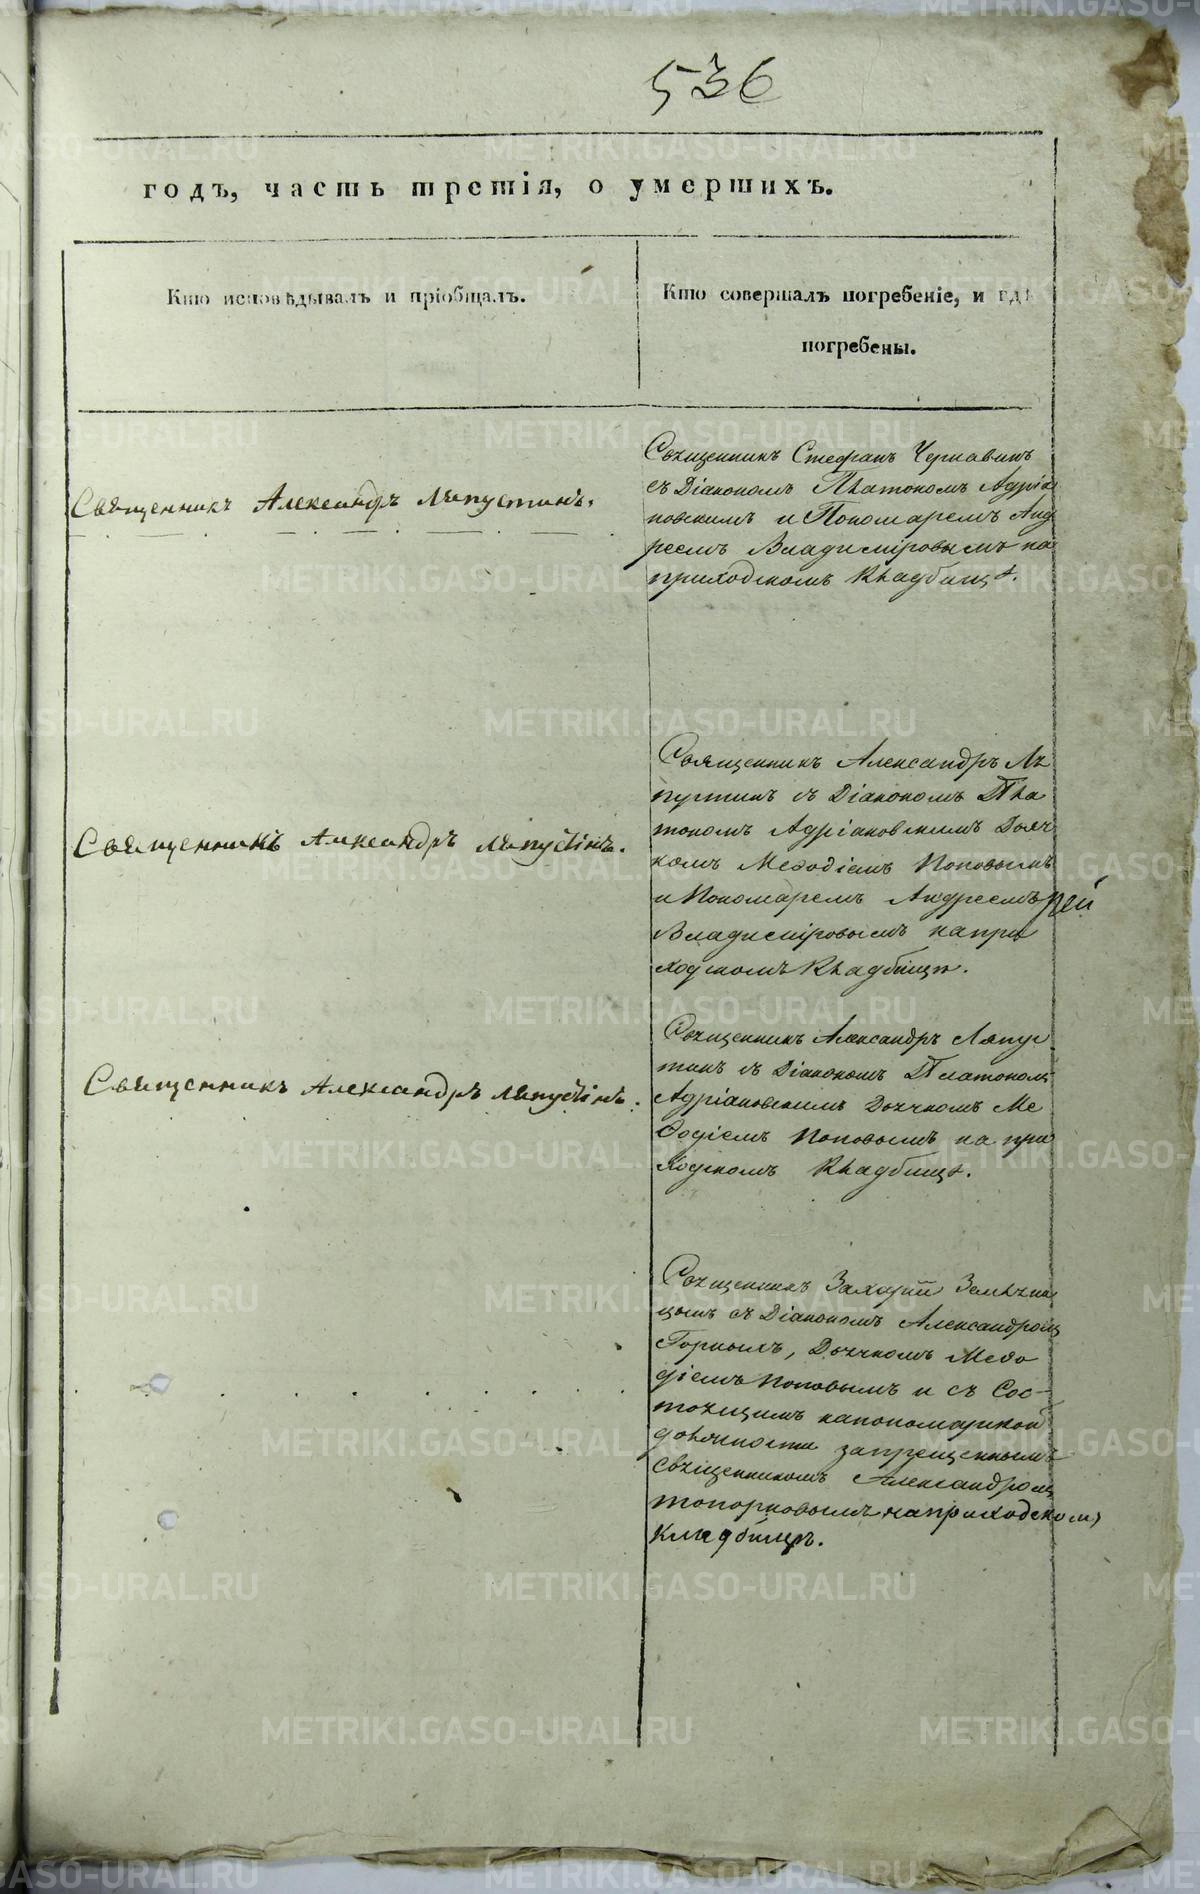 536
годъ, часть третія, о умершихъ.
Кто исповѣдывалъ и пріобщалъ.
Кто совершалъ погребеніе, и гдѣ
погребены.
Священникъ Александръ Ляпустинъ.
Священникъ Стефанъ Чернавинъ
съ Діакономъ Платономъ Адріа
новскимъ и Пономаремъ Анд
реемъ Владиміровымъ на
приходскомъ Кладбищѣ.
Священникъ Александръ Ляпустінъ.
Священникъ Александръ Ля
пустинъ съ Діакономъ Пла
тономъ Адріановскимъ Дьяч
комъ Меѳодіемъ Поповымъ
и Пономаремъ Андреемъ
Владиміровымъ на при
ходскомъ Кладбищѣ.
Священникъ Александръ Ляпустінъ.
Священникъ Александръ Ляпус
тинъ съ Діакономъ Платономъ
Адріановскимъ Дьячкомъ Ме
ѳодіемъ Поповымъ на при
ходскомъ Кладбищѣ.
Священникъ Захарій
съ Діакономъ Александромъ
Горнымъ, Дьячкомъ Меѳо
діемъ Поповымъ и съ Сос-
тоящимъ на пономарской
должности запрещеннымъ
священникомъ Александромъ
топорковымъ на приходскомъ
Кладбищѣ.
METRIKI.GASO-URAL.RU